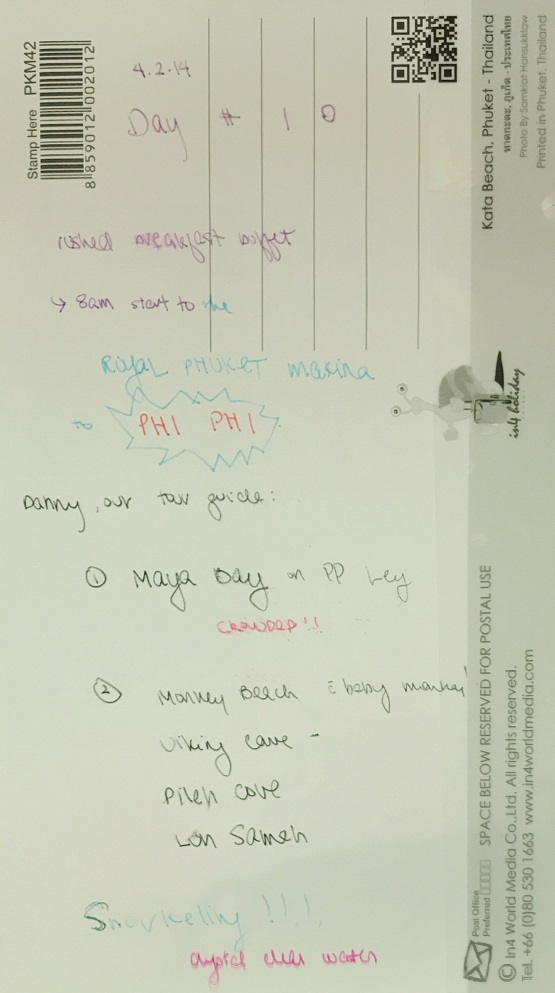 4.2.14
Day # 10
rushed breakfast buffet
↳ 8am start to the
Royal PHUKET Marina
to PHI PHI
Danny, our tour guide:
① Maya Bay on PP Ley
CROWDED!!
② Monkey Beach baby monkey!
Viking cave -
Pileh cove
Loh Sameh
Snorkeling !!!!
crystal clear water
Stamp Here PKM42
8 859012 002012
Kata Beach, Phuket - Thailand
หาดกะตะ, ภูเก็ต - ประเทศไทย
Photo By Somkiat Hansukklow
Printed in Phuket, Thailand
in4 holiday
Post Office
Preferred
SPACE BELOW RESERVED FOR POSTAL USE
© In4 World Media Co.,Ltd. All rights reserved.
Tel. +66 (0)80 530 1663 www.in4worldmedia.com